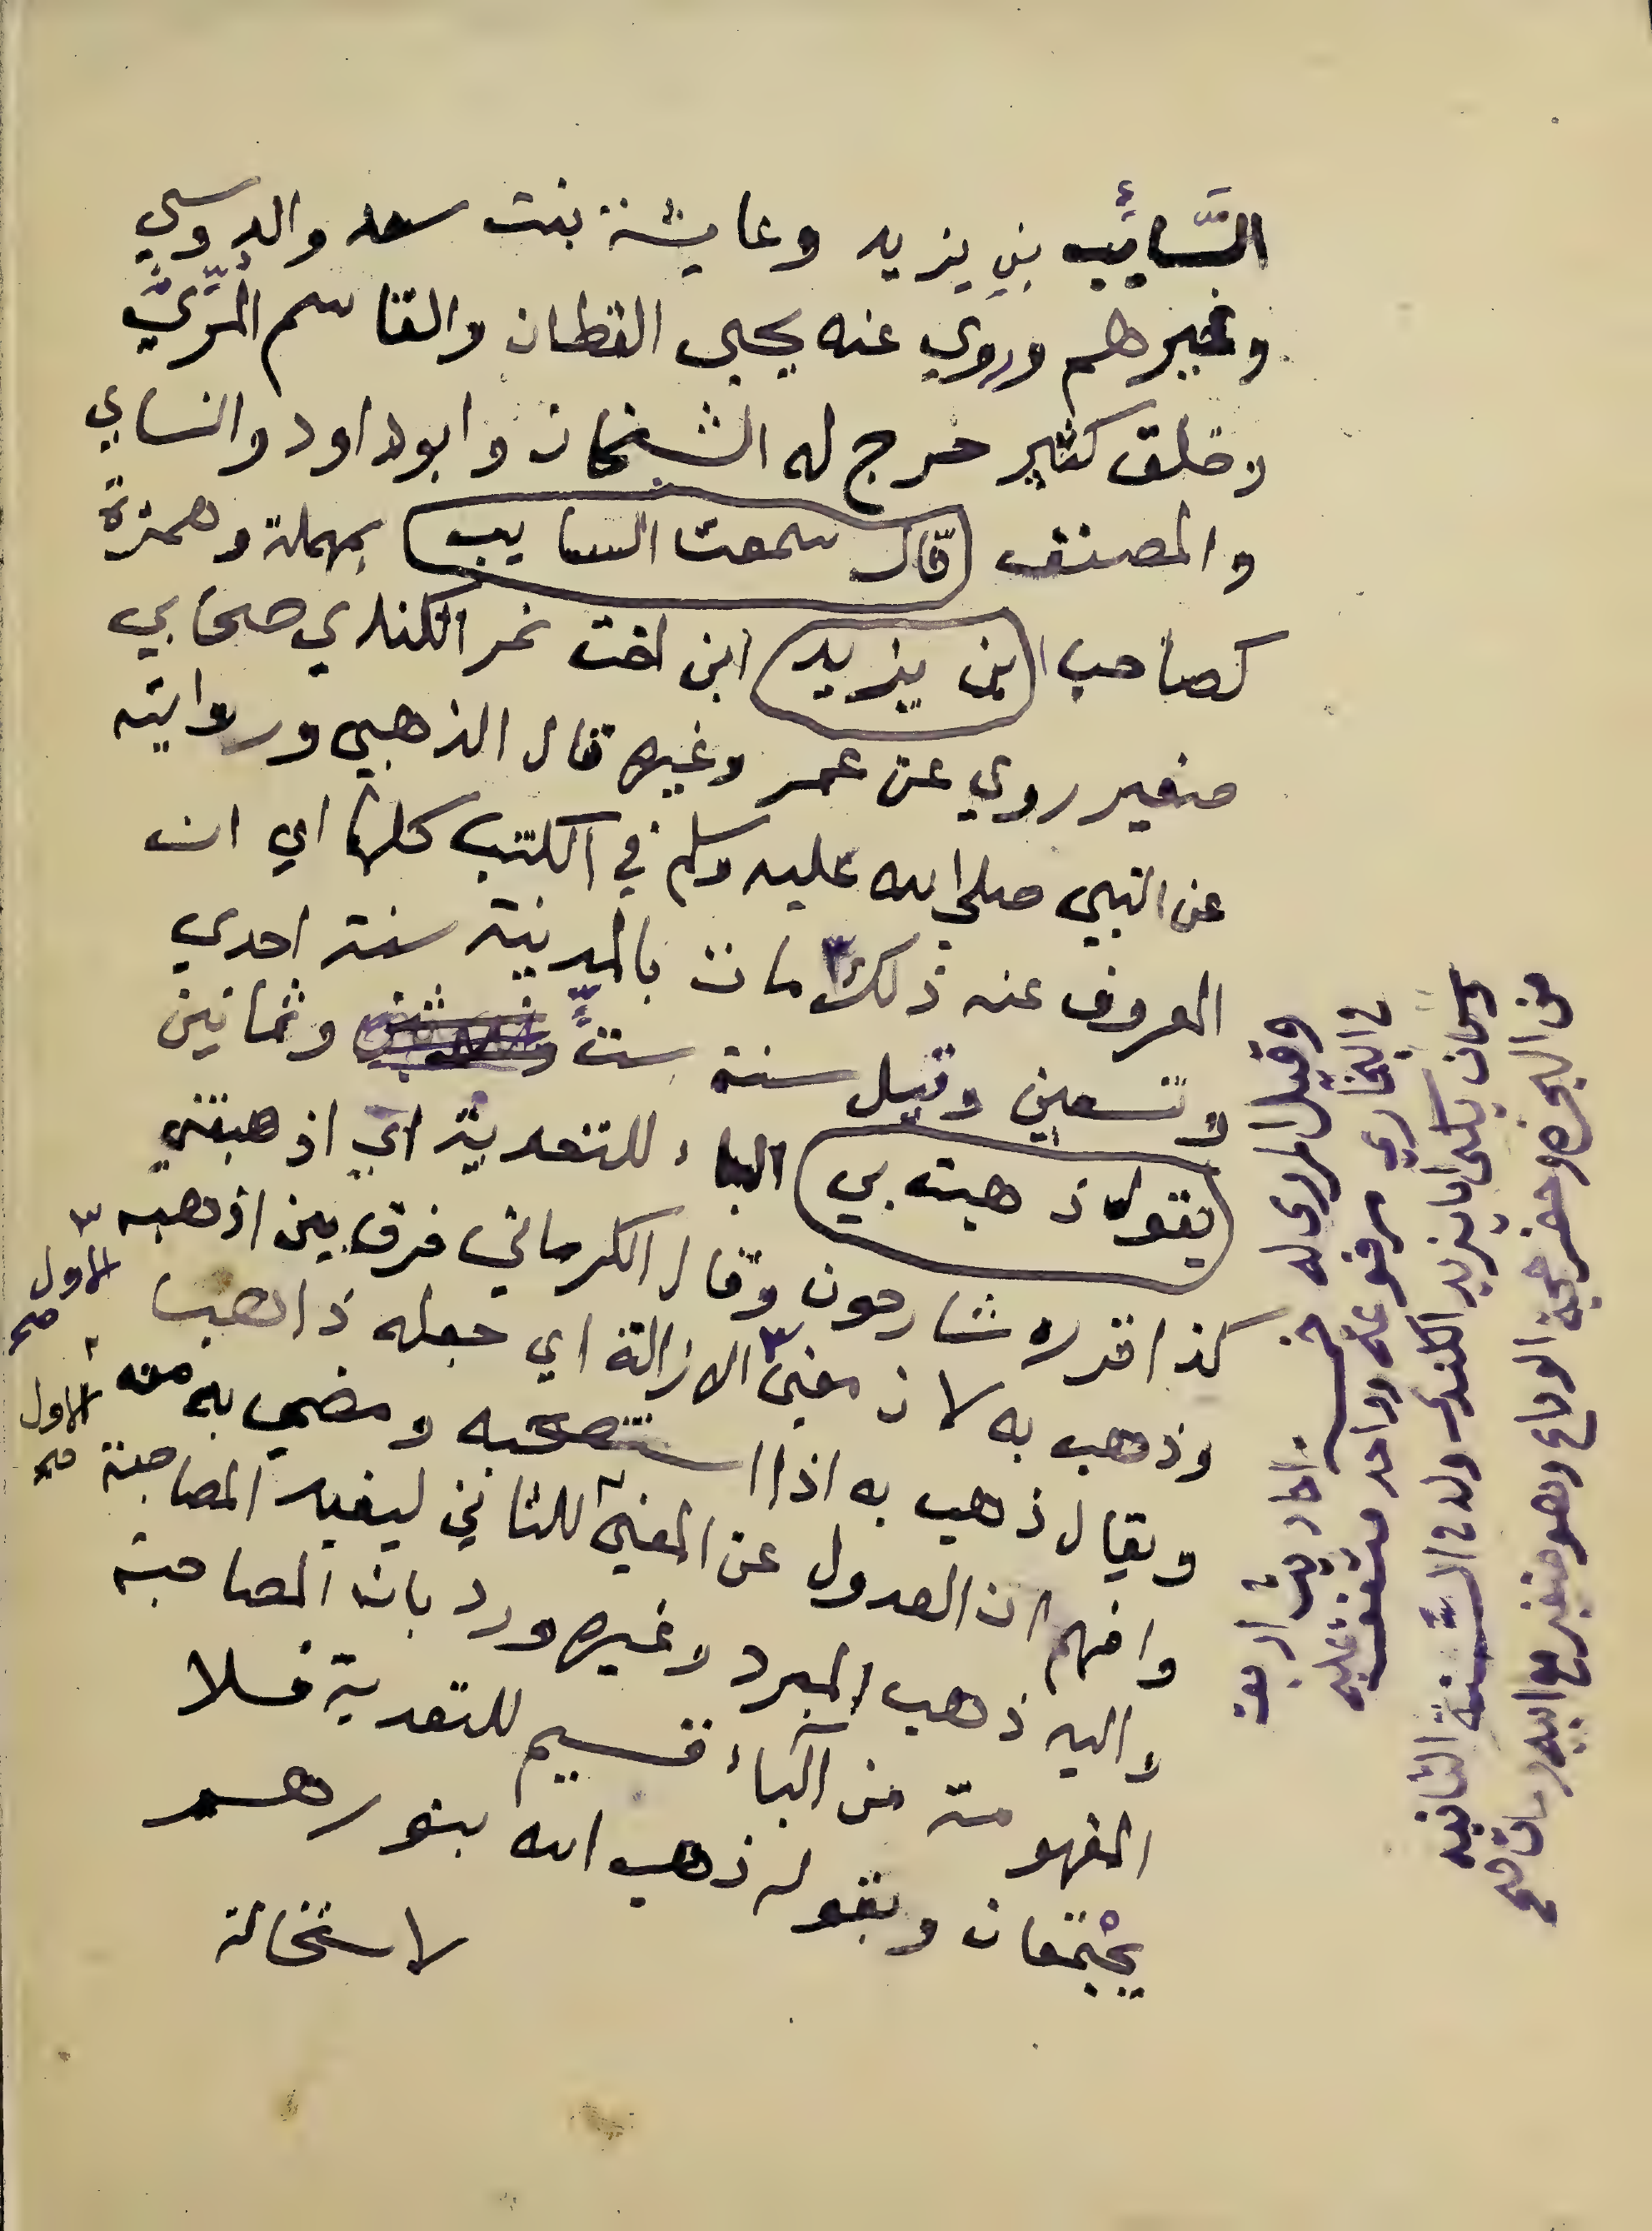 السَّائِب بن يزيد وعايشة بنت سعد والدوسي
وغيرهم وروي عنه يحيى القطان والقاسم المُزَنيّ
وخلق كثير خرج له الشيخان وابو داود والنساي
والمصنف قال سمعت السايب بمهملة وهمزة
كصاحب ابن يزيد ابن اخت نمر الكندي صحابي
صغير روي عن عمر وغيره قال الذهبي وروايته
عن النبي صلى الله عليه وسلم في الكتب كلها اي ان
المعروف عنه ذلك مات بالمدينة سنة احدي
وتسعين وقيل سنة ستٍّ وثمانين
يقول ذهبت بي الباء للتعدية اي اذهبتني
كذا اقره شارحون وقال الكرماني فرق بين اذهبه
وذهب به لان معنى الازالة اي جعله ذاهبا
ويقال ذهب به اذا استصحبه ومضي به معه
وافهم ان العدول عن المعنى للثاني ليفيد المصاحبة
واليه ذهب المبرد وغيره ورد بان المصاحبة
المفهومة من الباء قسيم للتعدية فلا
يجتمعان وبقوله ذهب الله بنورهم
لاستحالة
الاول
صح
الاول
صح
وقيل المروي له خمسة احاديث اربعة
في البخاري مرفوعة وواحد متفق عليه
يكنى ابا يزيد الكندي ولد في السَّنة الثانيه
من الهجرة وحضر حجة الوداع وهو صغير مع ابيه ومات